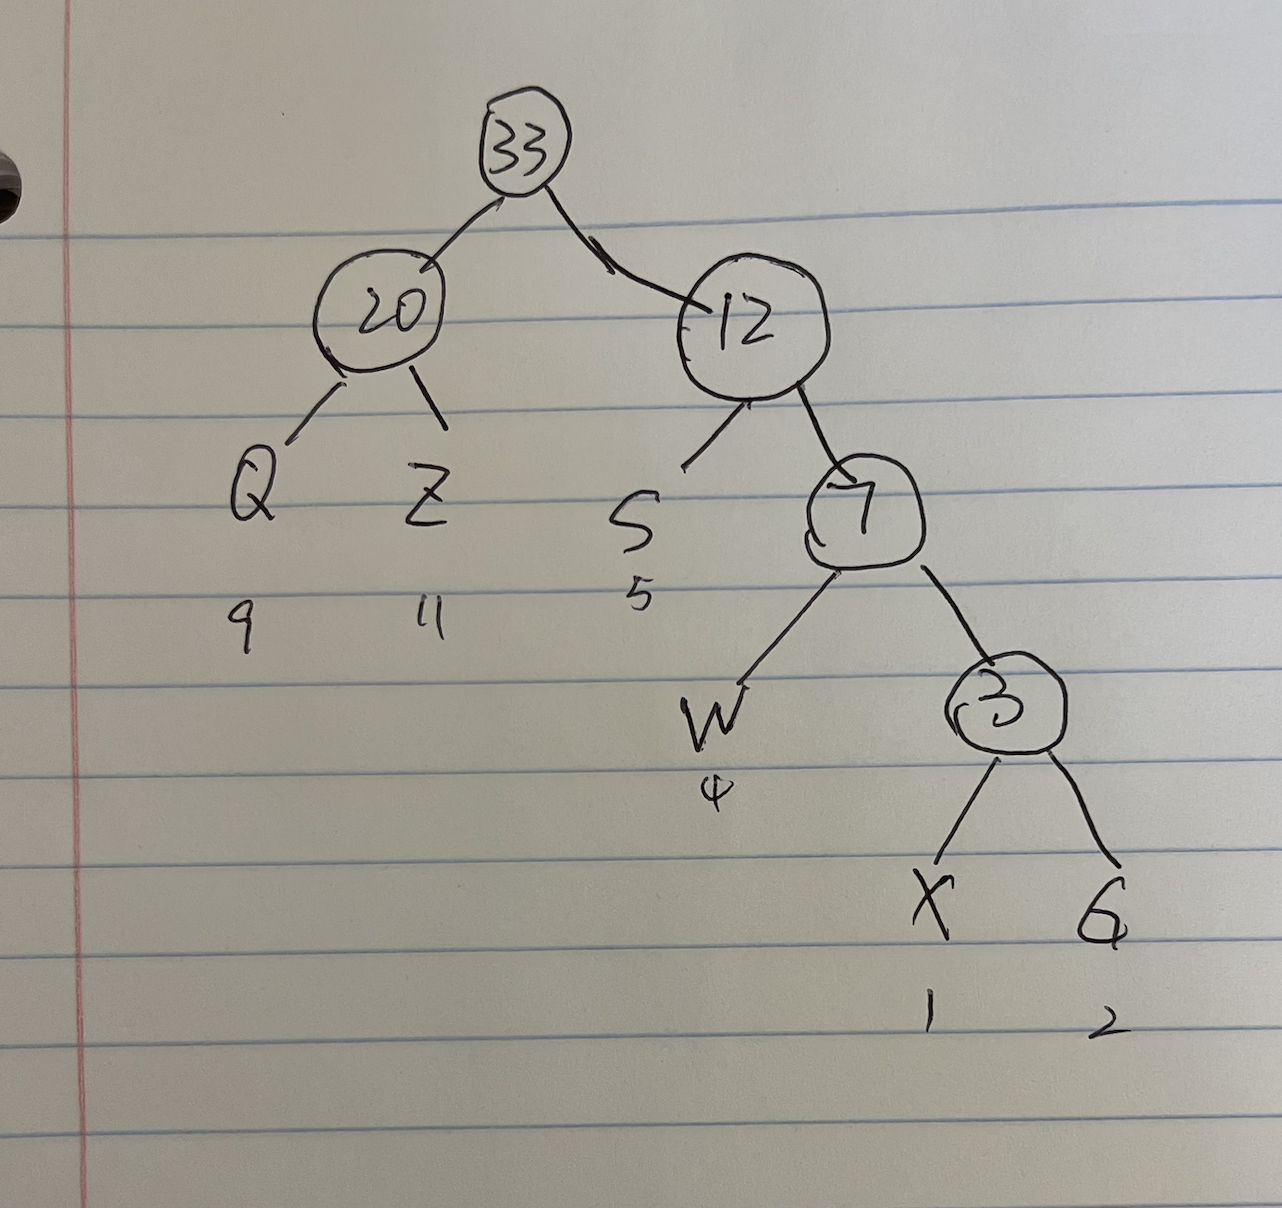 33
20 12
Q Z S 7
9 11 5
W 3
4
X G
1 2